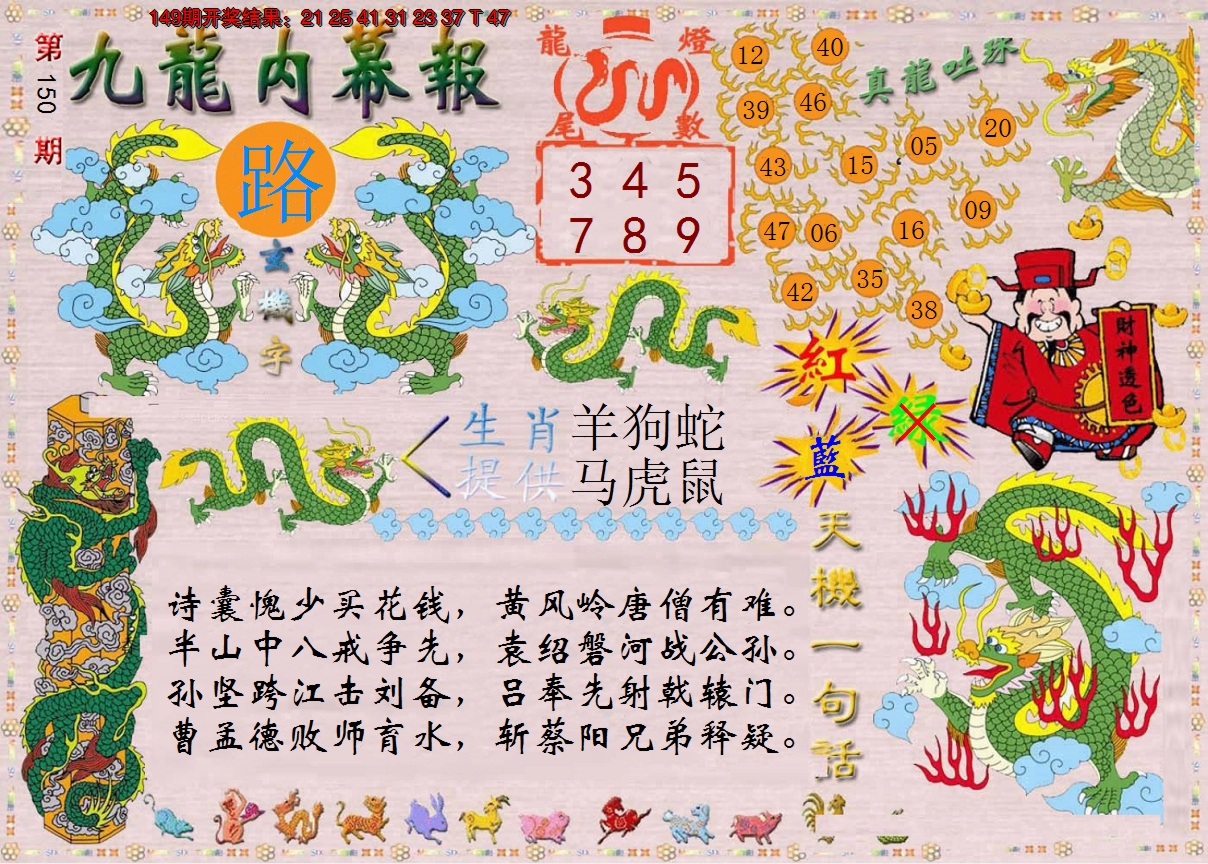 149期开奖结果：21 25 41 31 23 37 T 47
第150期
九龍内幕報
路
玄機字
龍燈
尾數
3 4 5
7 8 9
真龍吐珠
12
40
39
46
43
15
05
20
47
06
16
09
42
35
38
財神透色
紅
绿
藍
生肖提供
羊狗蛇
马虎鼠
诗囊愧少买花钱，黄风岭唐僧有难。
半山中八戒争先，袁绍磐河战公孙。
孙坚跨江击刘备，吕奉先射戟辕门。
曹孟德败师育水，斩蔡阳兄弟释疑。
天機一句話